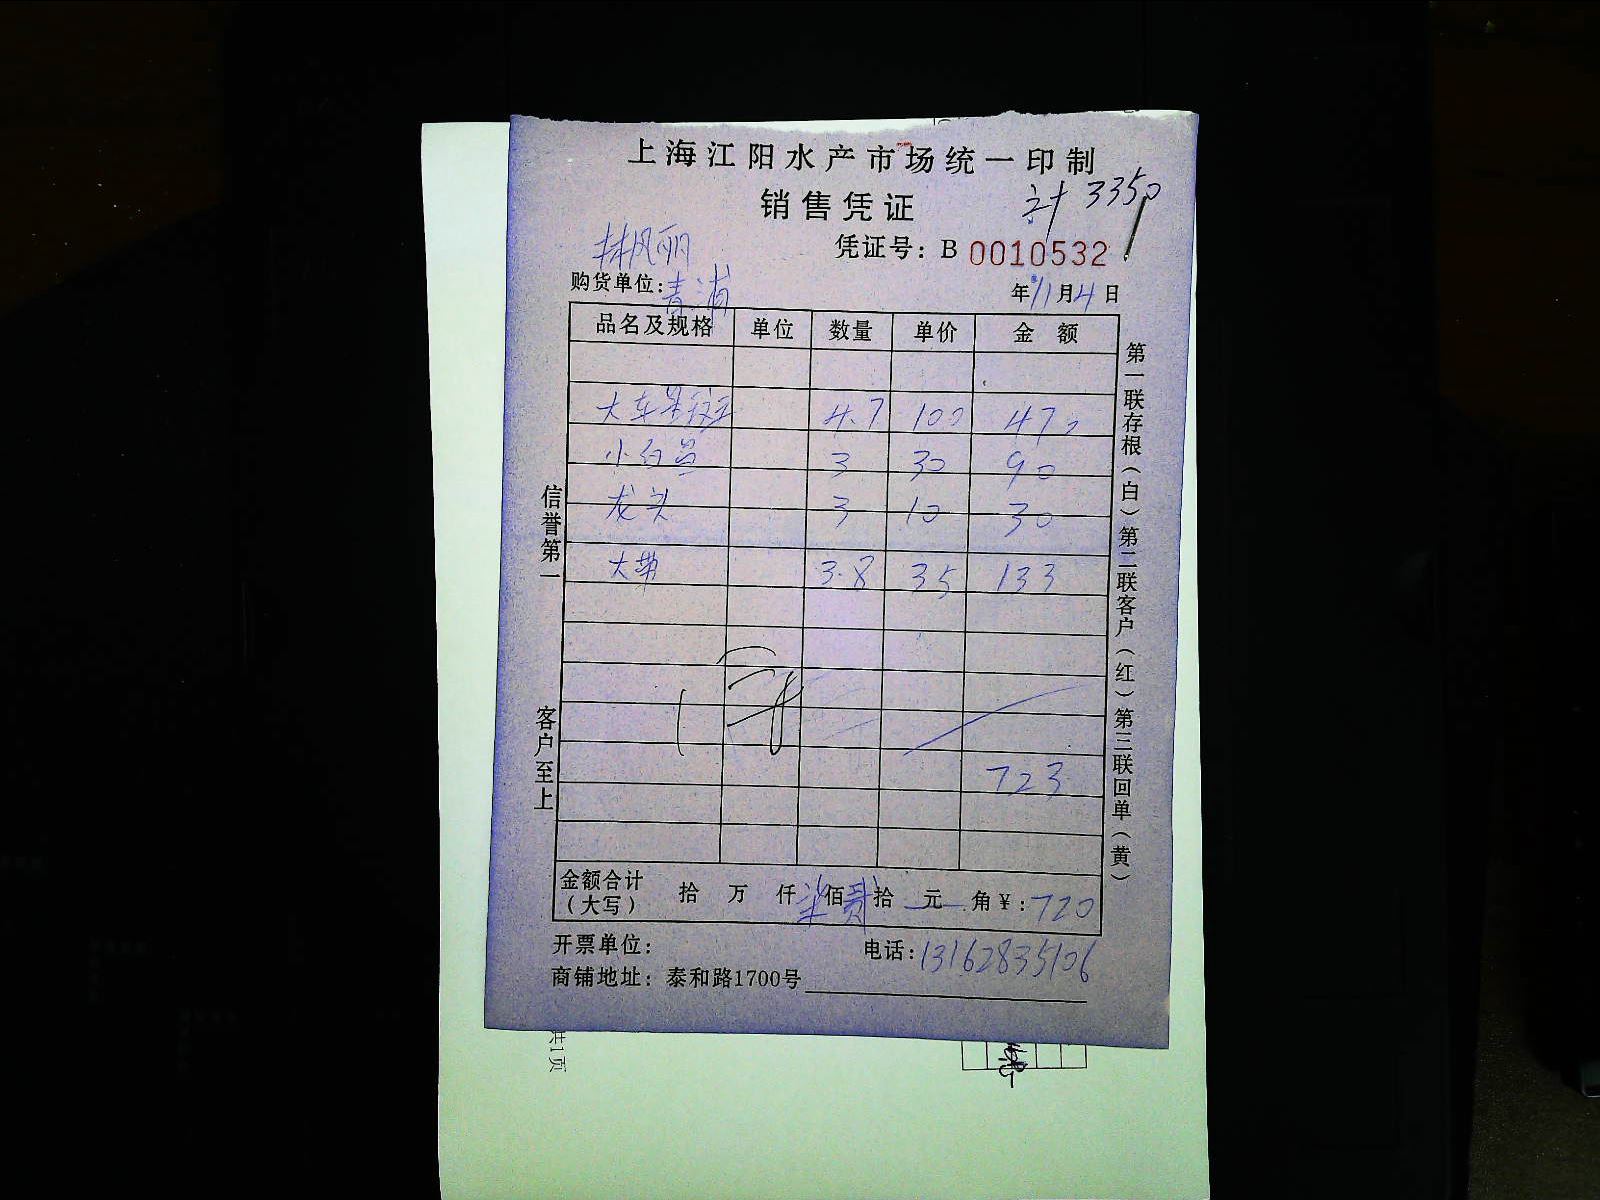 上海江阳水产市场统一印制
销售凭证
计 3350
林凤丽
凭证号: B 0010532
购货单位: 青浦
年 11 月 4 日
品名及规格 单位 数量 单价 金额
大东星斑 4.7 100 470
小白 3 30 90
龙头 3 10 30
大带 3.8 35 133
723
金额合计(大写) 拾 万 仟 柒佰贰拾 元 角 ¥: 720
开票单位: 电话: 13162835106
商铺地址: 泰和路1700号
信誉第一 客户至上
第一联存根(白)第二联客户(红)第三联回单(黄)
共1页